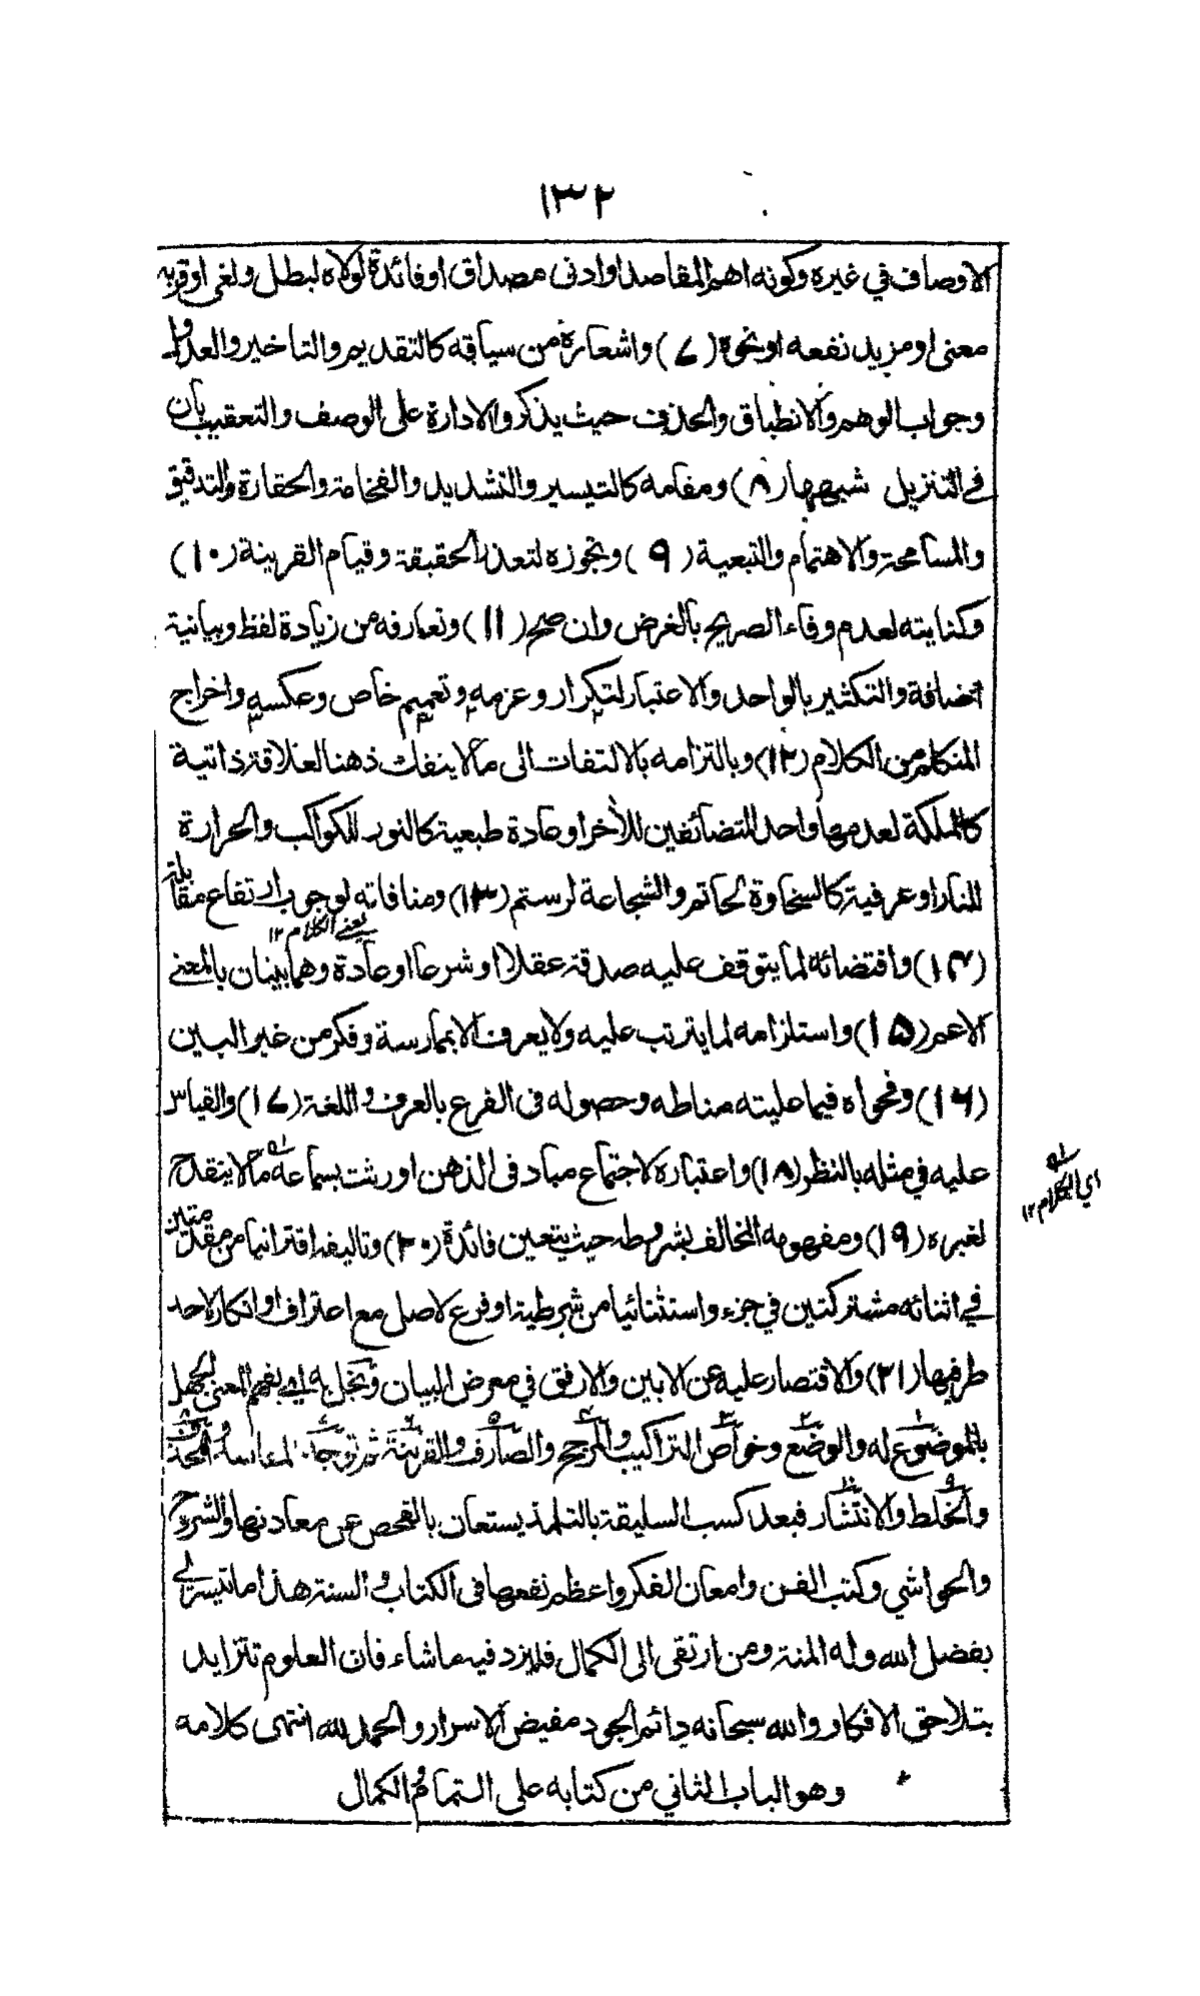 ١٣٢
الاوصاف في غيره وكونه اهم المقاصد او ادنى مصداق او فائدة لولاه لبطل ولغى او قربه
معنى او مزيد نفعه او نحوه (٧) واشعاره من سياقه كالتقديم والتاخير والعدول
وجواب الوهم والانطباق والحذف حيث يذكر والادارة على الوصف والتعقيب بان
في التنزيل شبهها (٨) ومقامه كالتيسير والتشديد والفخامة والحقارة والتدقيق
والمسامحة والاهتمام والتبعية (٩) وتجوزه لتعذر الحقيقة وقيام القرينة (١٠)
وكنايته لعدم وفاء الصريح بالغرض وان صح (١١) وتعارفه من زيادة لفظ وبيانية
اضافة والتكثير بالواحد والاعتبار لتكرار وعزمه وتعميم خاص وعكسه واخراج
المتكلم من الكلام (١٢) وبالتزامه بالالتفات الى ما لا ينفك ذهنا لعلاقة ذاتية
كالملكة لعدمها واحد المتضائفين للأخر او عادة طبعية كالنور للكواكب والحرارة
للنار او عرفية كالسخاوة لحاتم والشجاعة لرستم (١٣) ومنافاته لوجوب ارتفاع مقابله
يعني الكلام ١٢
(١٤) واقتضائه لما يتوقف عليه صدقه عقلا او شرعا او عادة وهما بينان بالمعنى
الاعم (١٥) واستلزامه لما يترتب عليه ولا يعرف الا بممارسة وفكر من غير البين
(١٦) وفحواه فيما علیته مناطه وحصوله فى الفرع بالعرف واللغة (١٧) والقياس
عليه في مثله بالنظر (١٨) واعتباره لاجتماع مباد فى الذهن اورثت بسماعه ما لا ينقدح
اي الكلام ١٢
لغيره (١٩) ومفهومه المخالف بشروطه حيث يتعين فائدة (٢٠) وتاليفه اقترانيا من مقدمتين
في اثنائه مشتركتين في جزء واستثنائيا من شرطية او فرع لاصل مع اعتراف او انكار لاحد
طرفيها (٢١) والاقتصار عليه عن الابين والارفق في معرض البيان ويخل به اي بفهم المعنى الجهل
بالموضوع له والوضع وخواص التراكيب والمرجح والصارف والقرينة ثم
والخلط والانتشار فبعد كسب السليقة بالتلمذ يستعان بالفحص عن معادنها والشروح
والحواشي وكتب الفن وامعان الفكر واعظم نفعها فى الكتاب والسنة هذا ما تيسر لي
بفضل الله وله المنة ومن ارتقى الى الكمال فليزد فيه ما شاء فان العلوم تتزايد
بتلاحق الافكار والله سبحانه دائم الجود مفيض الاسرار والحمد لله انتهى كلامه
وهو الباب الثاني من كتابه على التمام والكمال